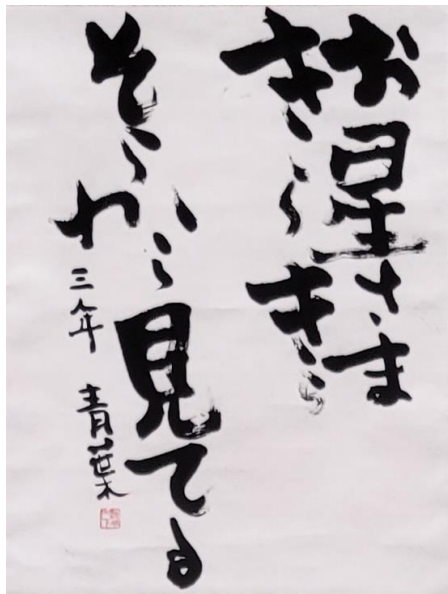 お星さま
きらきら
そらから
見てる
三年 青葉